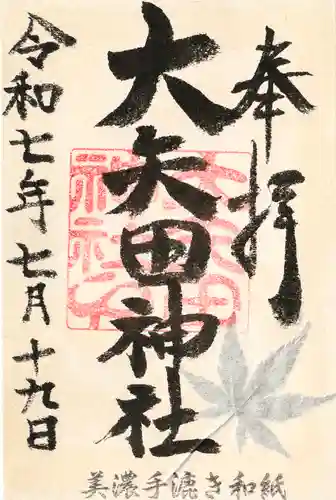 奉拝
大矢田神社
令和七年七月十九日
美濃手漉き和紙